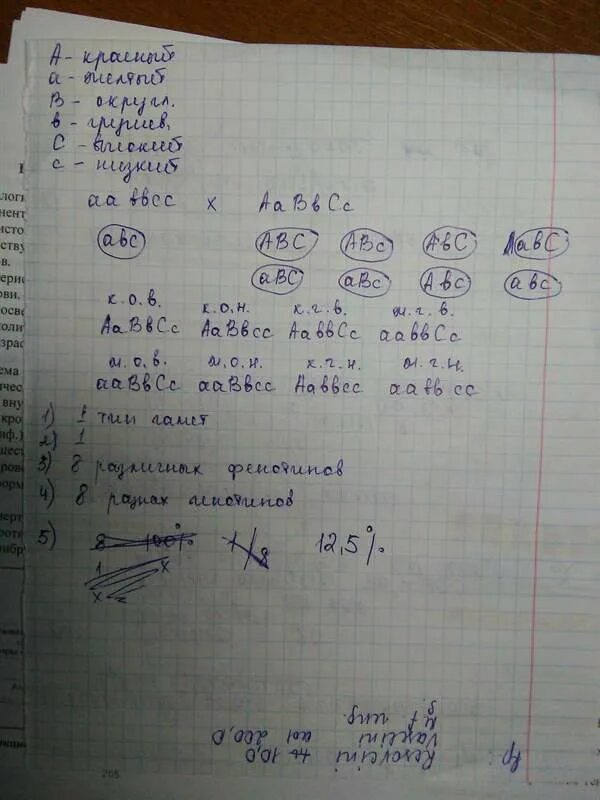 А - красный
а - желтый
В - округл.
в - грушев.
С - высокий
с - низкий
аа ввсс х АаВвСс
авс АВС АВс АвС авС
аВС аВс Авс авс
к.о.в. к.о.н. к.г.в. ж.г.в.
АаВвСс АаВвсс АаввСс ааввСс
ж.о.в. ж.о.н. к.г.н. ж.г.н.
ааВвСс ааВвсс Ааввсс аавв сс
1) 1 тип гамет
2) 1
3) 8 различных фенотипов
4) 8 разных генотипов
5) 8 100% 1/8 12,5%
1 х
х
Rp: Resorcini 10,0
Vaselini ad 200,0
M. f. ung.
S.
205